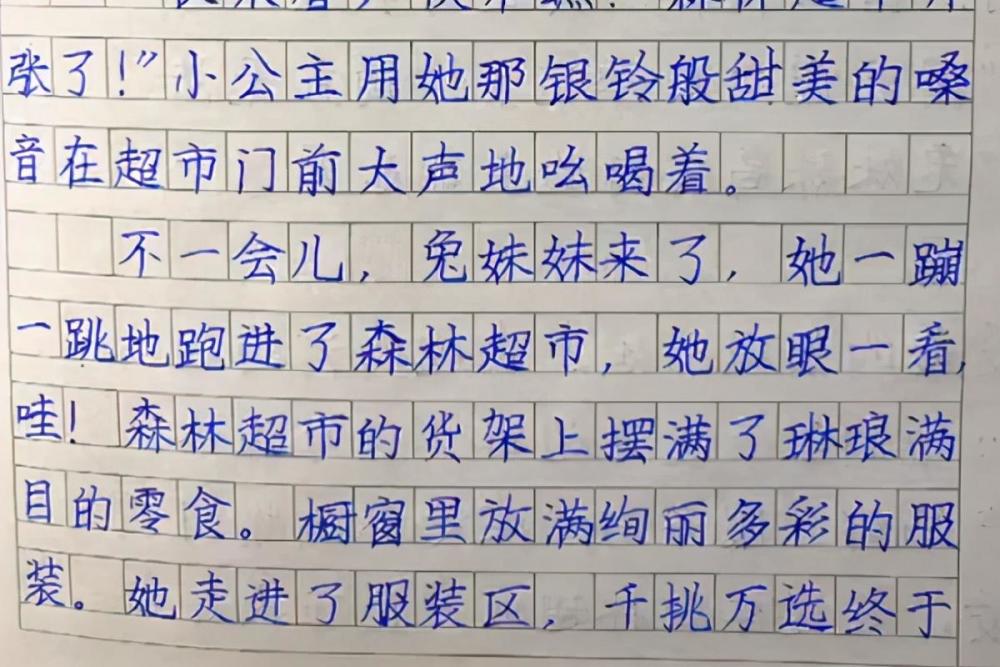 张了!”小公主用她那银铃般甜美的嗓
音在超市门前大声地吆喝着。
不一会儿,兔妹妹来了,她一蹦
一跳地跑进了森林超市,她放眼一看,
哇!森林超市的货架上摆满了琳琅满
目的零食。橱窗里放满绚丽多彩的服
装。她走进了服装区,千挑万选终于